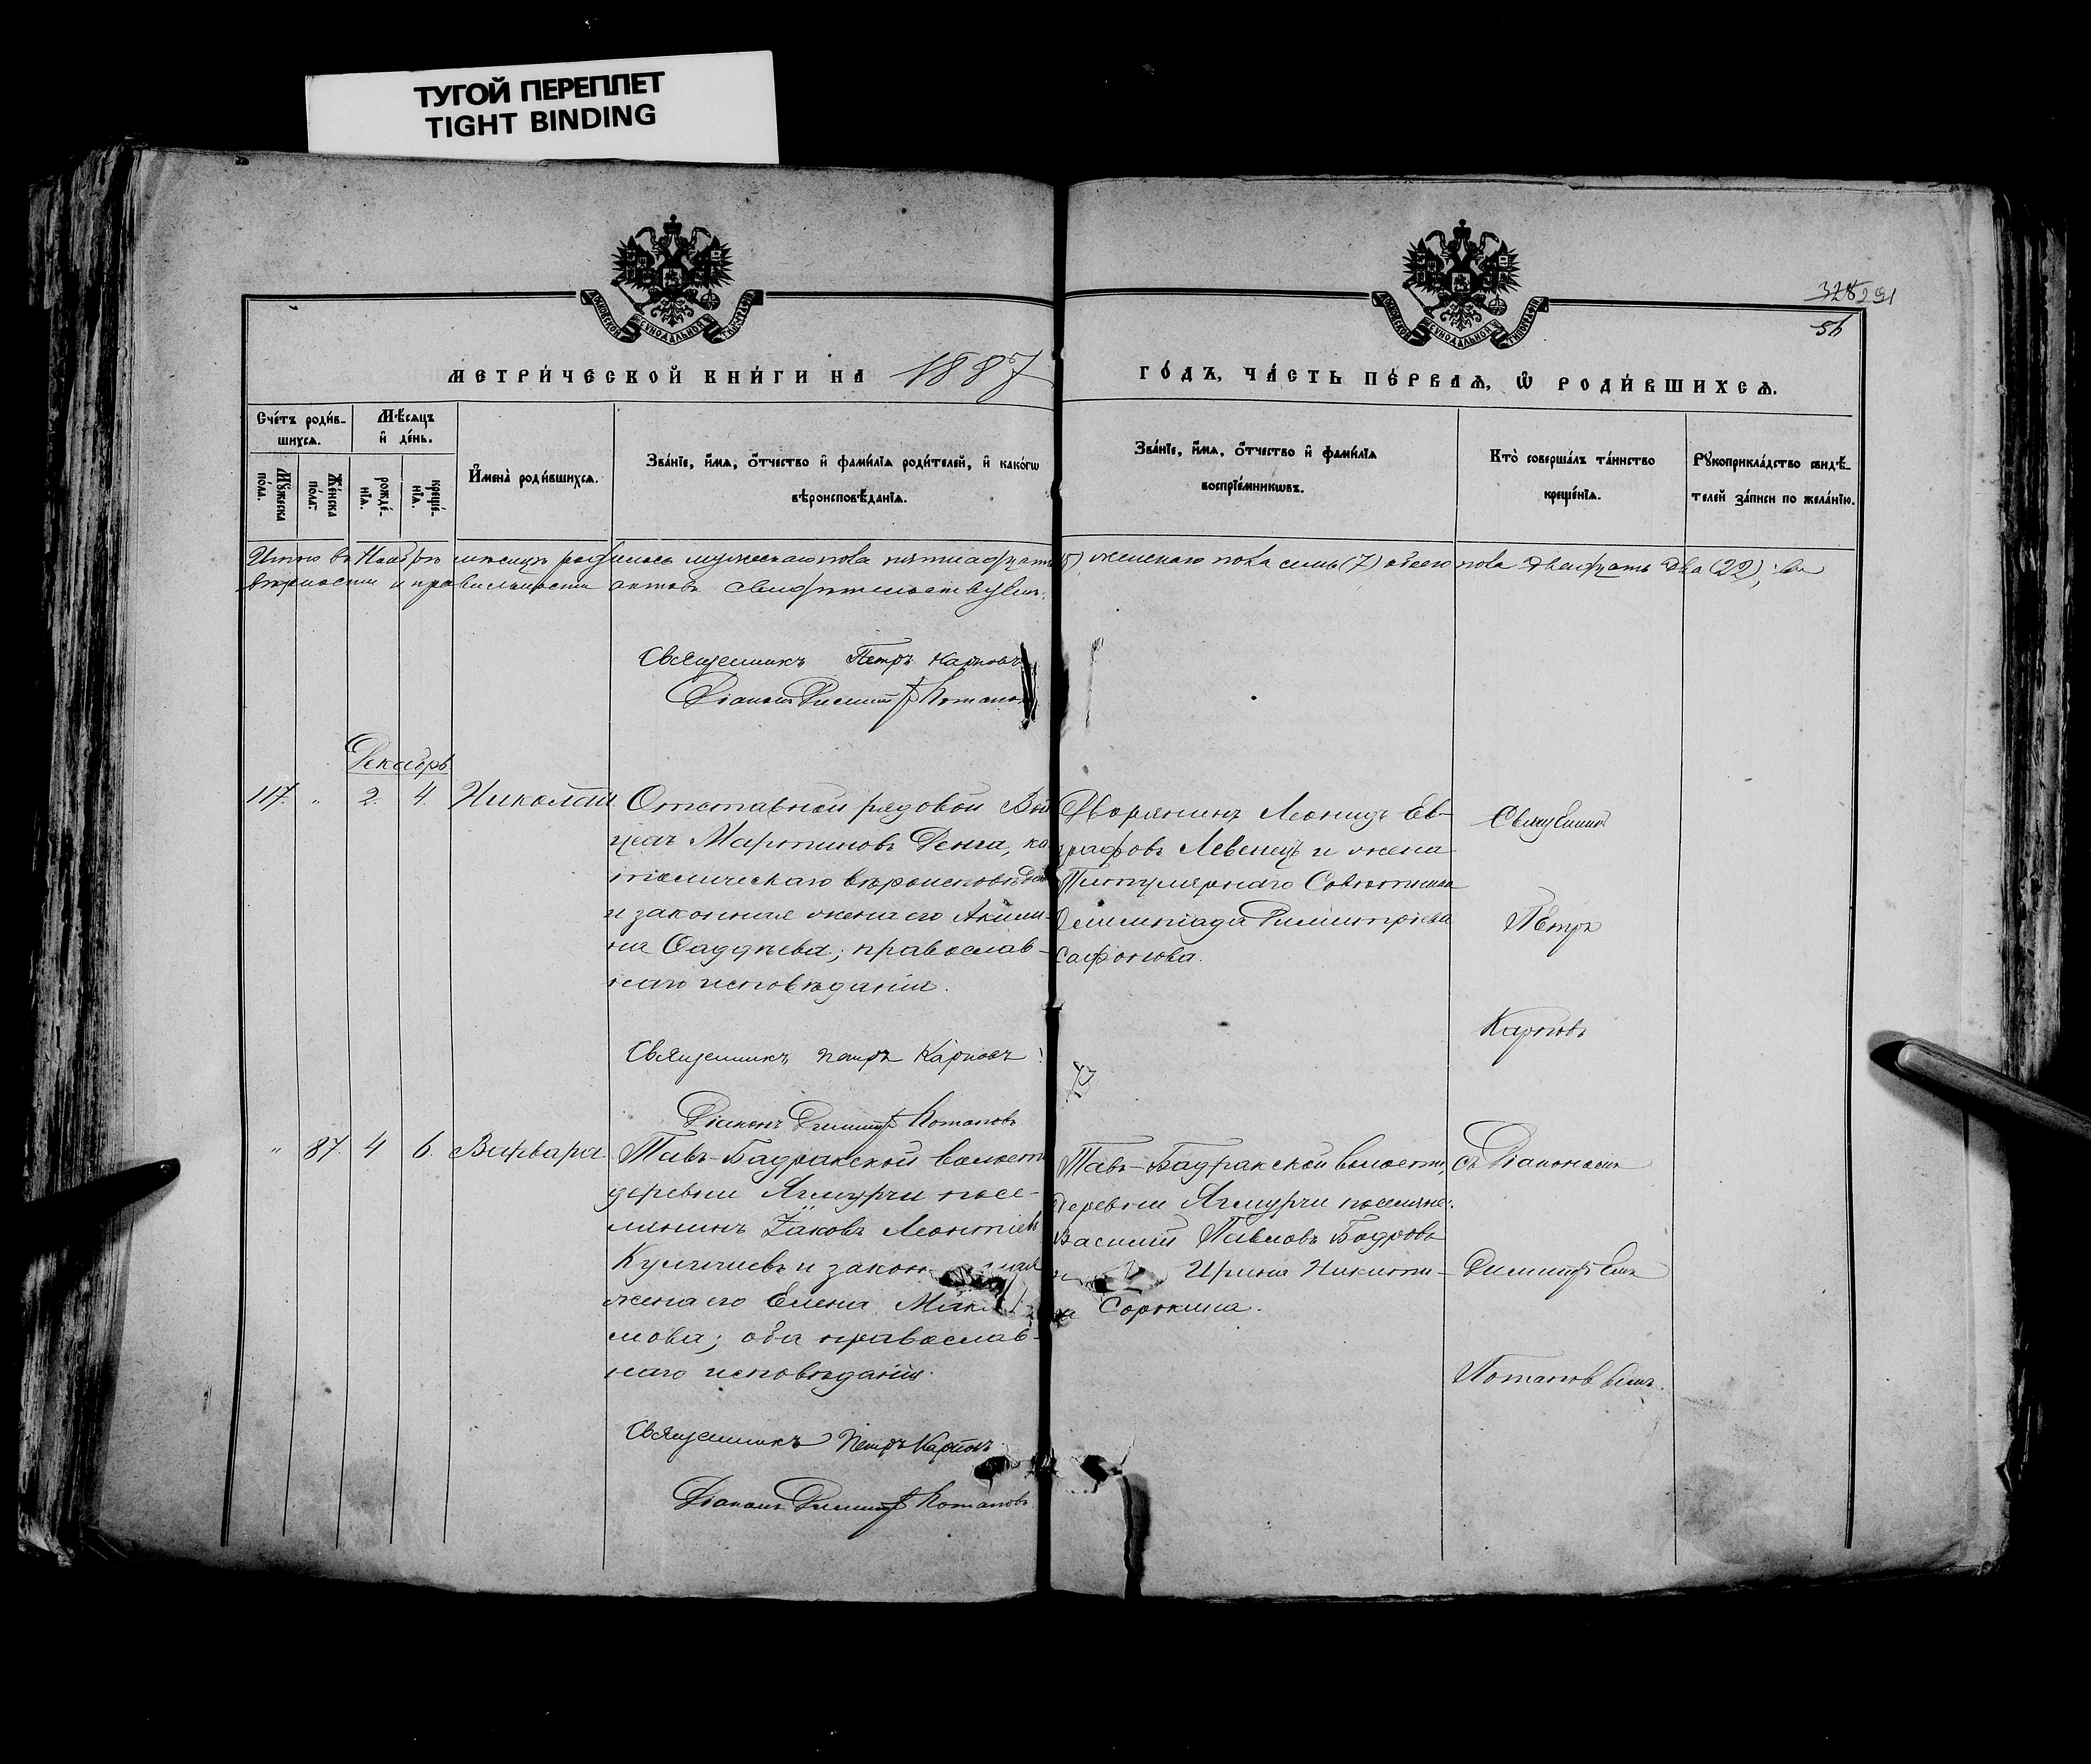 ТУГОЙ ПЕРЕПЛЕТ
TIGHT BINDING
МОСКОВСКОЙ СУНОДАЛЬНОЙ ТИПОГРАФІИ
МОСКОВСКОЙ СУНОДАЛЬНОЙ ТИПОГРАФІИ
328 291
56
МЕТРИ́ЧЕСКОЙ КНИ́ГИ НА 1887 ГО́ДЪ, ЧА́СТЬ ПЕ́РВАѦ, Ѿ РОДИ́ВШИХСѦ.
Сче́тъ роди́в-
шихсѧ.
Мѣ́сѧцъ
и҆ де́нь.
Мꙋ́жеска
по́ла.
Же́нска
по́ла.
рожде́-
нїѧ.
креще́-
нїѧ.
И҆мена̀ роди́вшихсѧ.
Зва́нїе, и҆́мѧ, ѻ҆́тчество и҆ фами́лїѧ роди́телей, и҆ како́гѡ
вѣроисповѣ́данїѧ.
Зва́нїе, и҆́мѧ, ѻ҆́тчество и҆ фами́лїѧ
воспрїе́мникѡвъ.
Кто̀ соверша́лъ та́инство
креще́нїѧ.
Рꙋкоприкла́дство свидѣ́-
телей за́писи по жела́нїю.
Итого въ Ноябрѣ мѣсяцѣ родилось мужескаго пола пятнадцать (15) женскаго пола семь (7) обоего пола двадцать два (22); въ
вѣрности и правильности актовъ свидѣтельствуемъ:
Священникъ Петръ Карповъ
Діаконъ Димитрій Потаповъ
Декабрь
117. " 2. 4. Николай
Отставной рядовой Вой
цехъ Мартиновъ Денга, ка
толическаго вѣроисповѣдан
и законная жена его Акили-
на Фаддѣева; православ-
наго исповѣданія.
Дворянинъ Леонидъ Ев-
графовъ Левенецъ и жена
Титулярнаго Совѣтника
Олимпіада Димитріева
Сафонова.
Священникъ
Петръ
Карповъ
Священникъ Петръ Карповъ
Діаконъ Димитрій Потаповъ
" 87. 4 6. Варвара
Тавъ-Бадракской волости
деревни Ягмурчи посе-
лянинъ Іаковъ Леонтіевъ
и законная
жена его Елена
мова; оба православ-
наго исповѣданія.
Тавъ-Бадракской волости,
деревни Ягмурчи поселяне:
Василій Павловъ Бодровъ
и Ирина Никити-
на Сорокина.
съ Діакономъ
Димитріемъ
Потаповымъ.
Священникъ Петръ Карповъ
Діаконъ Димитрій Потаповъ